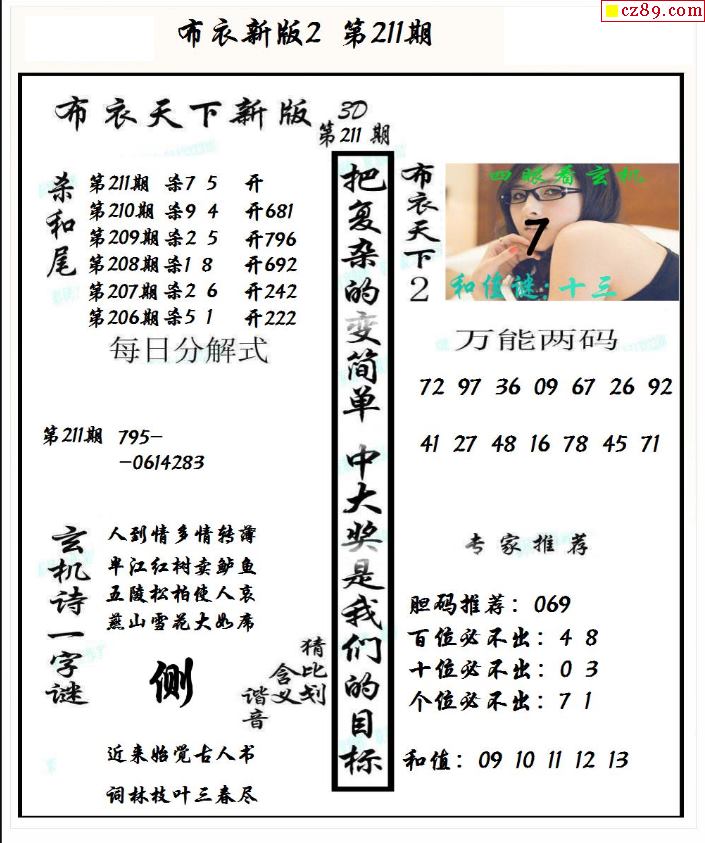 cz89.com
布衣新版2 第211期
布衣天下新版 3D
第211期
杀和尾
第211期 杀7 5 开
第210期 杀9 4 开681
第209期 杀2 5 开796
第208期 杀1 8 开692
第207期 杀2 6 开242
第206期 杀5 1 开222
每日分解式
第211期 795-
-0614283
玄机诗一字谜
人到情多情转薄
半江红树卖鲈鱼
五陵松柏使人哀
燕山雪花大如席
侧
猜比划
含义
谐音
近来始觉古人书
词林枝叶三春尽
把复杂的变简单 中大奖是我们的目标
布衣天下2
四眼看玄机
7
和值谜:十三
万能两码
72 97 36 09 67 26 92
41 27 48 16 78 45 71
专家推荐
胆码推荐：069
百位必不出：4 8
十位必不出：0 3
个位必不出：7 1
和值：09 10 11 12 13